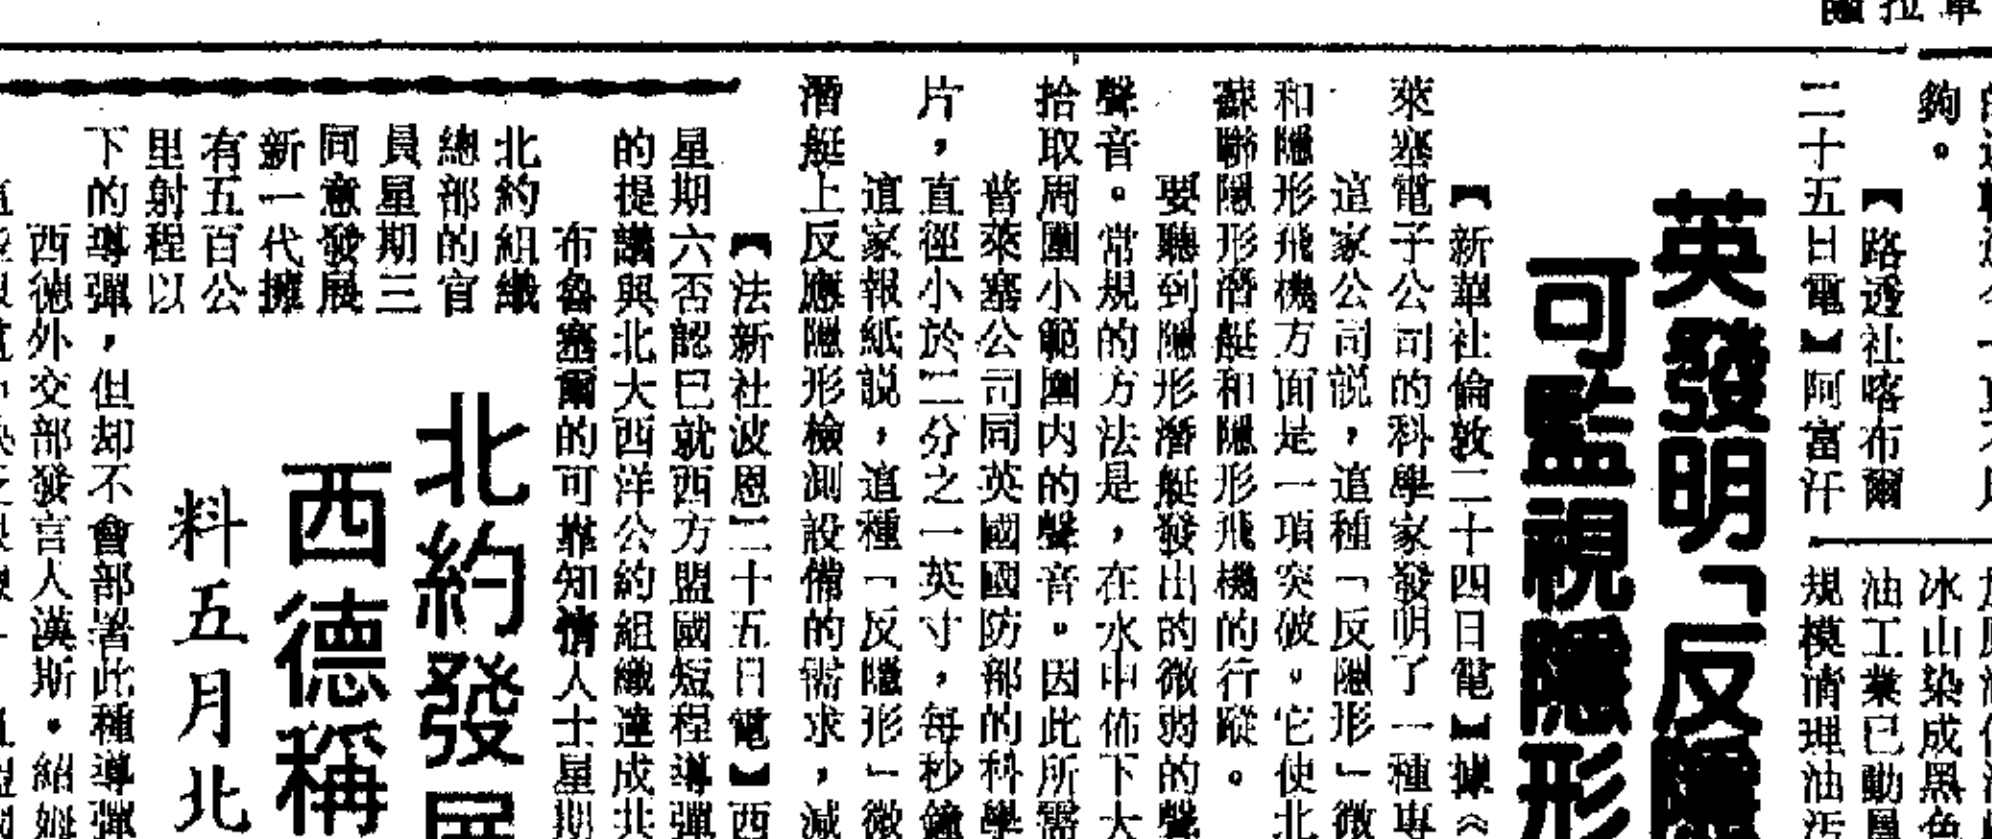 夠。
【路透社喀布爾
二十五日電】阿富汗
冰山染成黑色
油工業已動員
規模清理油污
英發明「反隱
可監視隱形
【新華社倫敦二十四日電】據《
萊塞電子公司的科學家發明了一種專
這家公司説，這種「反隱形」微
和隱形飛機方面是一項突破。它使北
蘇聯隱形潛艇和隱形飛機的行蹤。
要聽到隱形潛艇發出的微弱的聲
聲音。常規的方法是，在水中佈下大
拾取周圍小範圍内的聲音。因此所需
普萊塞公司同英國國防部的科學
片，直徑小於二分之一英寸，每秒鐘
這家報紙説，這種「反隱形」微
潛艇上反應隱形檢測設備的需求，減
【法新社波恩二十五日電】西
星期六否認已就西方盟國短程導彈
的提議與北大西洋公約組織達成共
布魯塞爾的可靠知情人士星期
北約組織
總部的官
員星期三
同意發展
新一代擁
有五百公
里射程以
下的導彈，但却不會部署此種導彈
北約發展
西德稱
料五月北
西德外交部發言人漢斯・紹姆